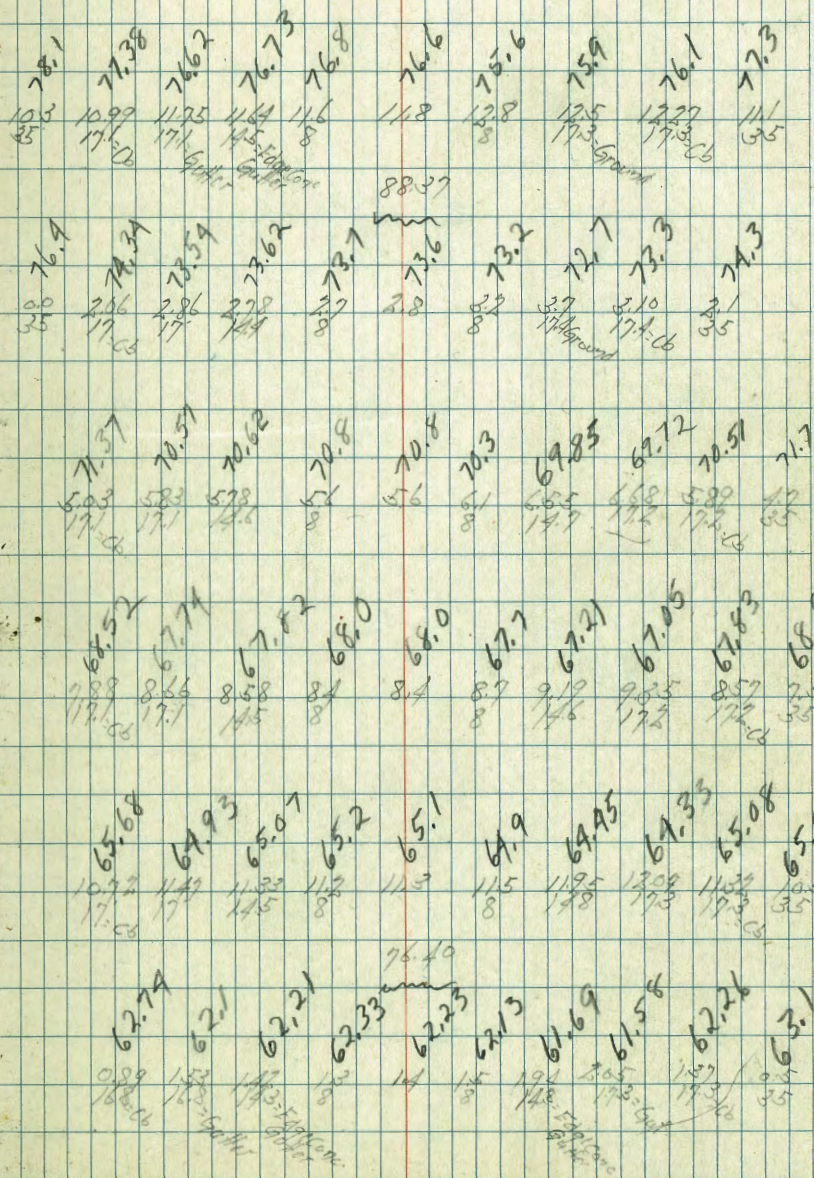 78.1 77.38 76.62 76.73 76.8 76.6 75.6 75.9 76.1 77.3
10.3 10.99 11.75 11.64 11.6 11.8 12.8 12.5 12.27 11.1
35 17.1=Cb 17.1=Gutter 14.5=Edge Conc Gutter 8 8 17.3=Ground 17.3=Cb 35
88.37
76.4 74.34 73.54 73.62 73.7 73.6 73.2 72.7 73.3 74.3
0.0 2.06 2.86 2.78 2.7 2.8 3.2 3.7 3.10 2.1
35 17=Cb 17 14.4 8 8 17.4 Ground 17.4=Cb 35
71.37 70.57 70.62 70.8 70.8 70.3 69.85 69.72 70.51 71.7
5.03 5.83 5.78 5.6 5.6 6.1 6.55 6.68 5.89 4.7
17.1=Cb 17.1 14.6 8 8 14.7 17.2 17.2=Cb 35
68.52 67.74 67.82 68.0 68.0 67.7 67.21 67.05 67.83 68
7.88 8.66 8.58 8.4 8.4 8.7 9.19 9.35 8.57 7.
17.1=Cb 17.1 14.5 8 8 14.6 17.2 17.2=Cb 35
65.68 64.93 65.07 65.2 65.1 64.9 64.45 64.33 65.08 65.
10.72 11.47 11.33 11.2 11.3 11.5 11.95 12.07 11.32 10.
17=Cb 17 14.5 8 8 14.8 17.3 17.3=Cb 35
76.40
62.74 62.1 62.21 62.33 62.23 62.13 61.69 61.58 62.26 63.1
0.89 1.53 1.42 1.3 1.4 1.5 1.94 2.05 1.37 0.5
16.8=Cb 16.8=Gutter 14.3=Edge Conc. Gutter 8 8 14.8=Edge Conc Gutter 17.3=Gut 17.3 Cb 35